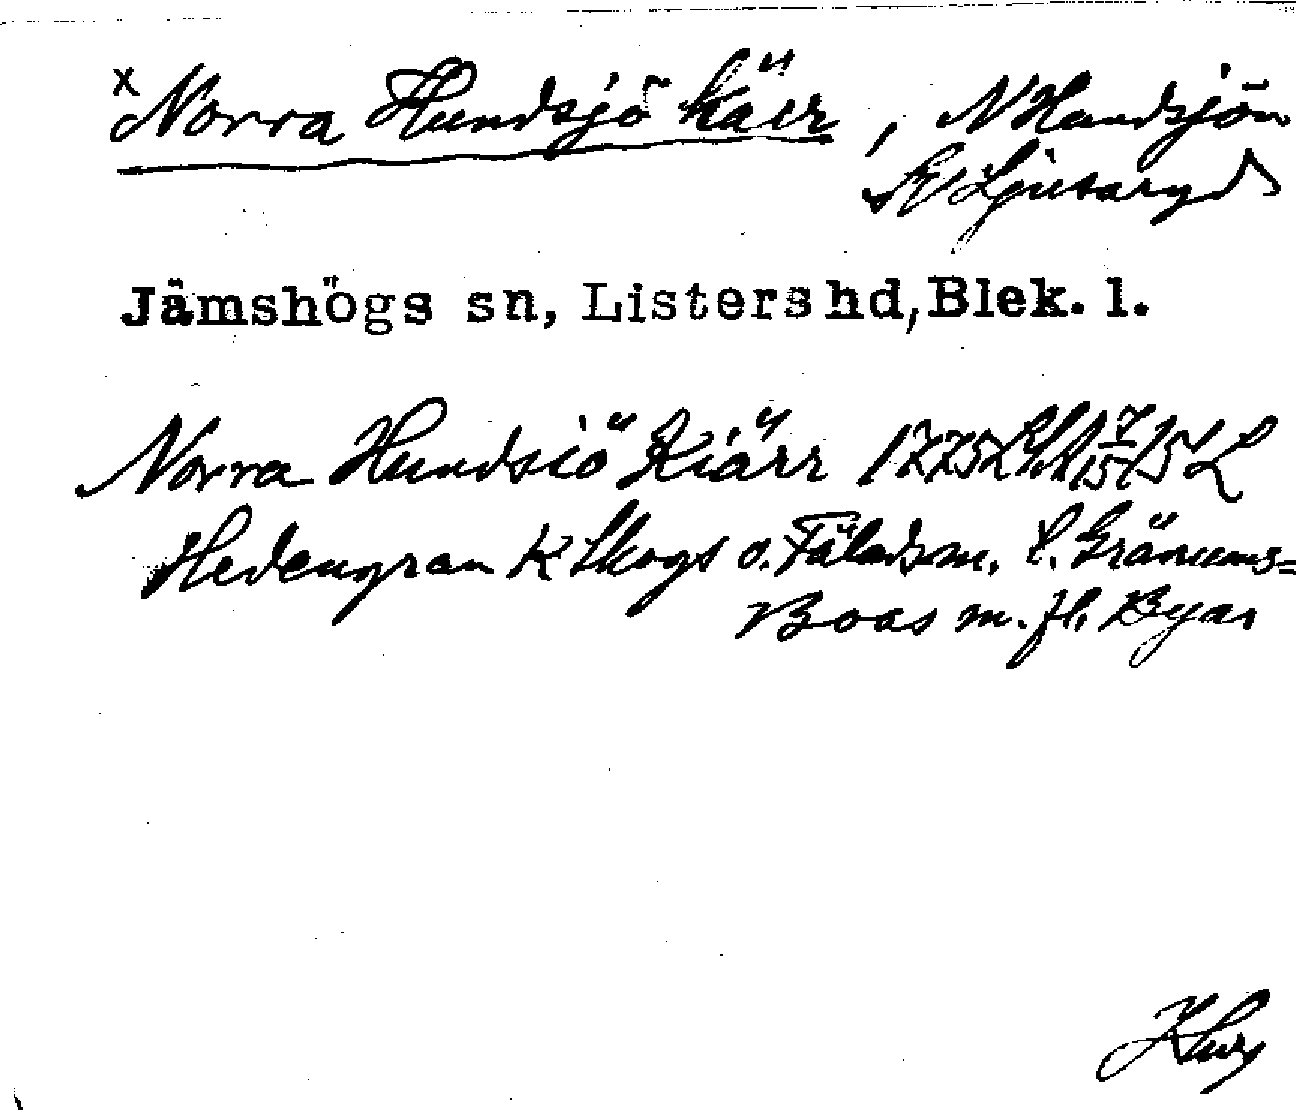 x Norra Hundsjö kärr, N Hundsjön
Ljusaryd
Jämshögs sn, Listers hd, Blek. l.
Norra Hundsiö Kiärr 1775
Hedengran K Skogs o. Fäladsm. t. Gränums=
Boas m. fl. Byar